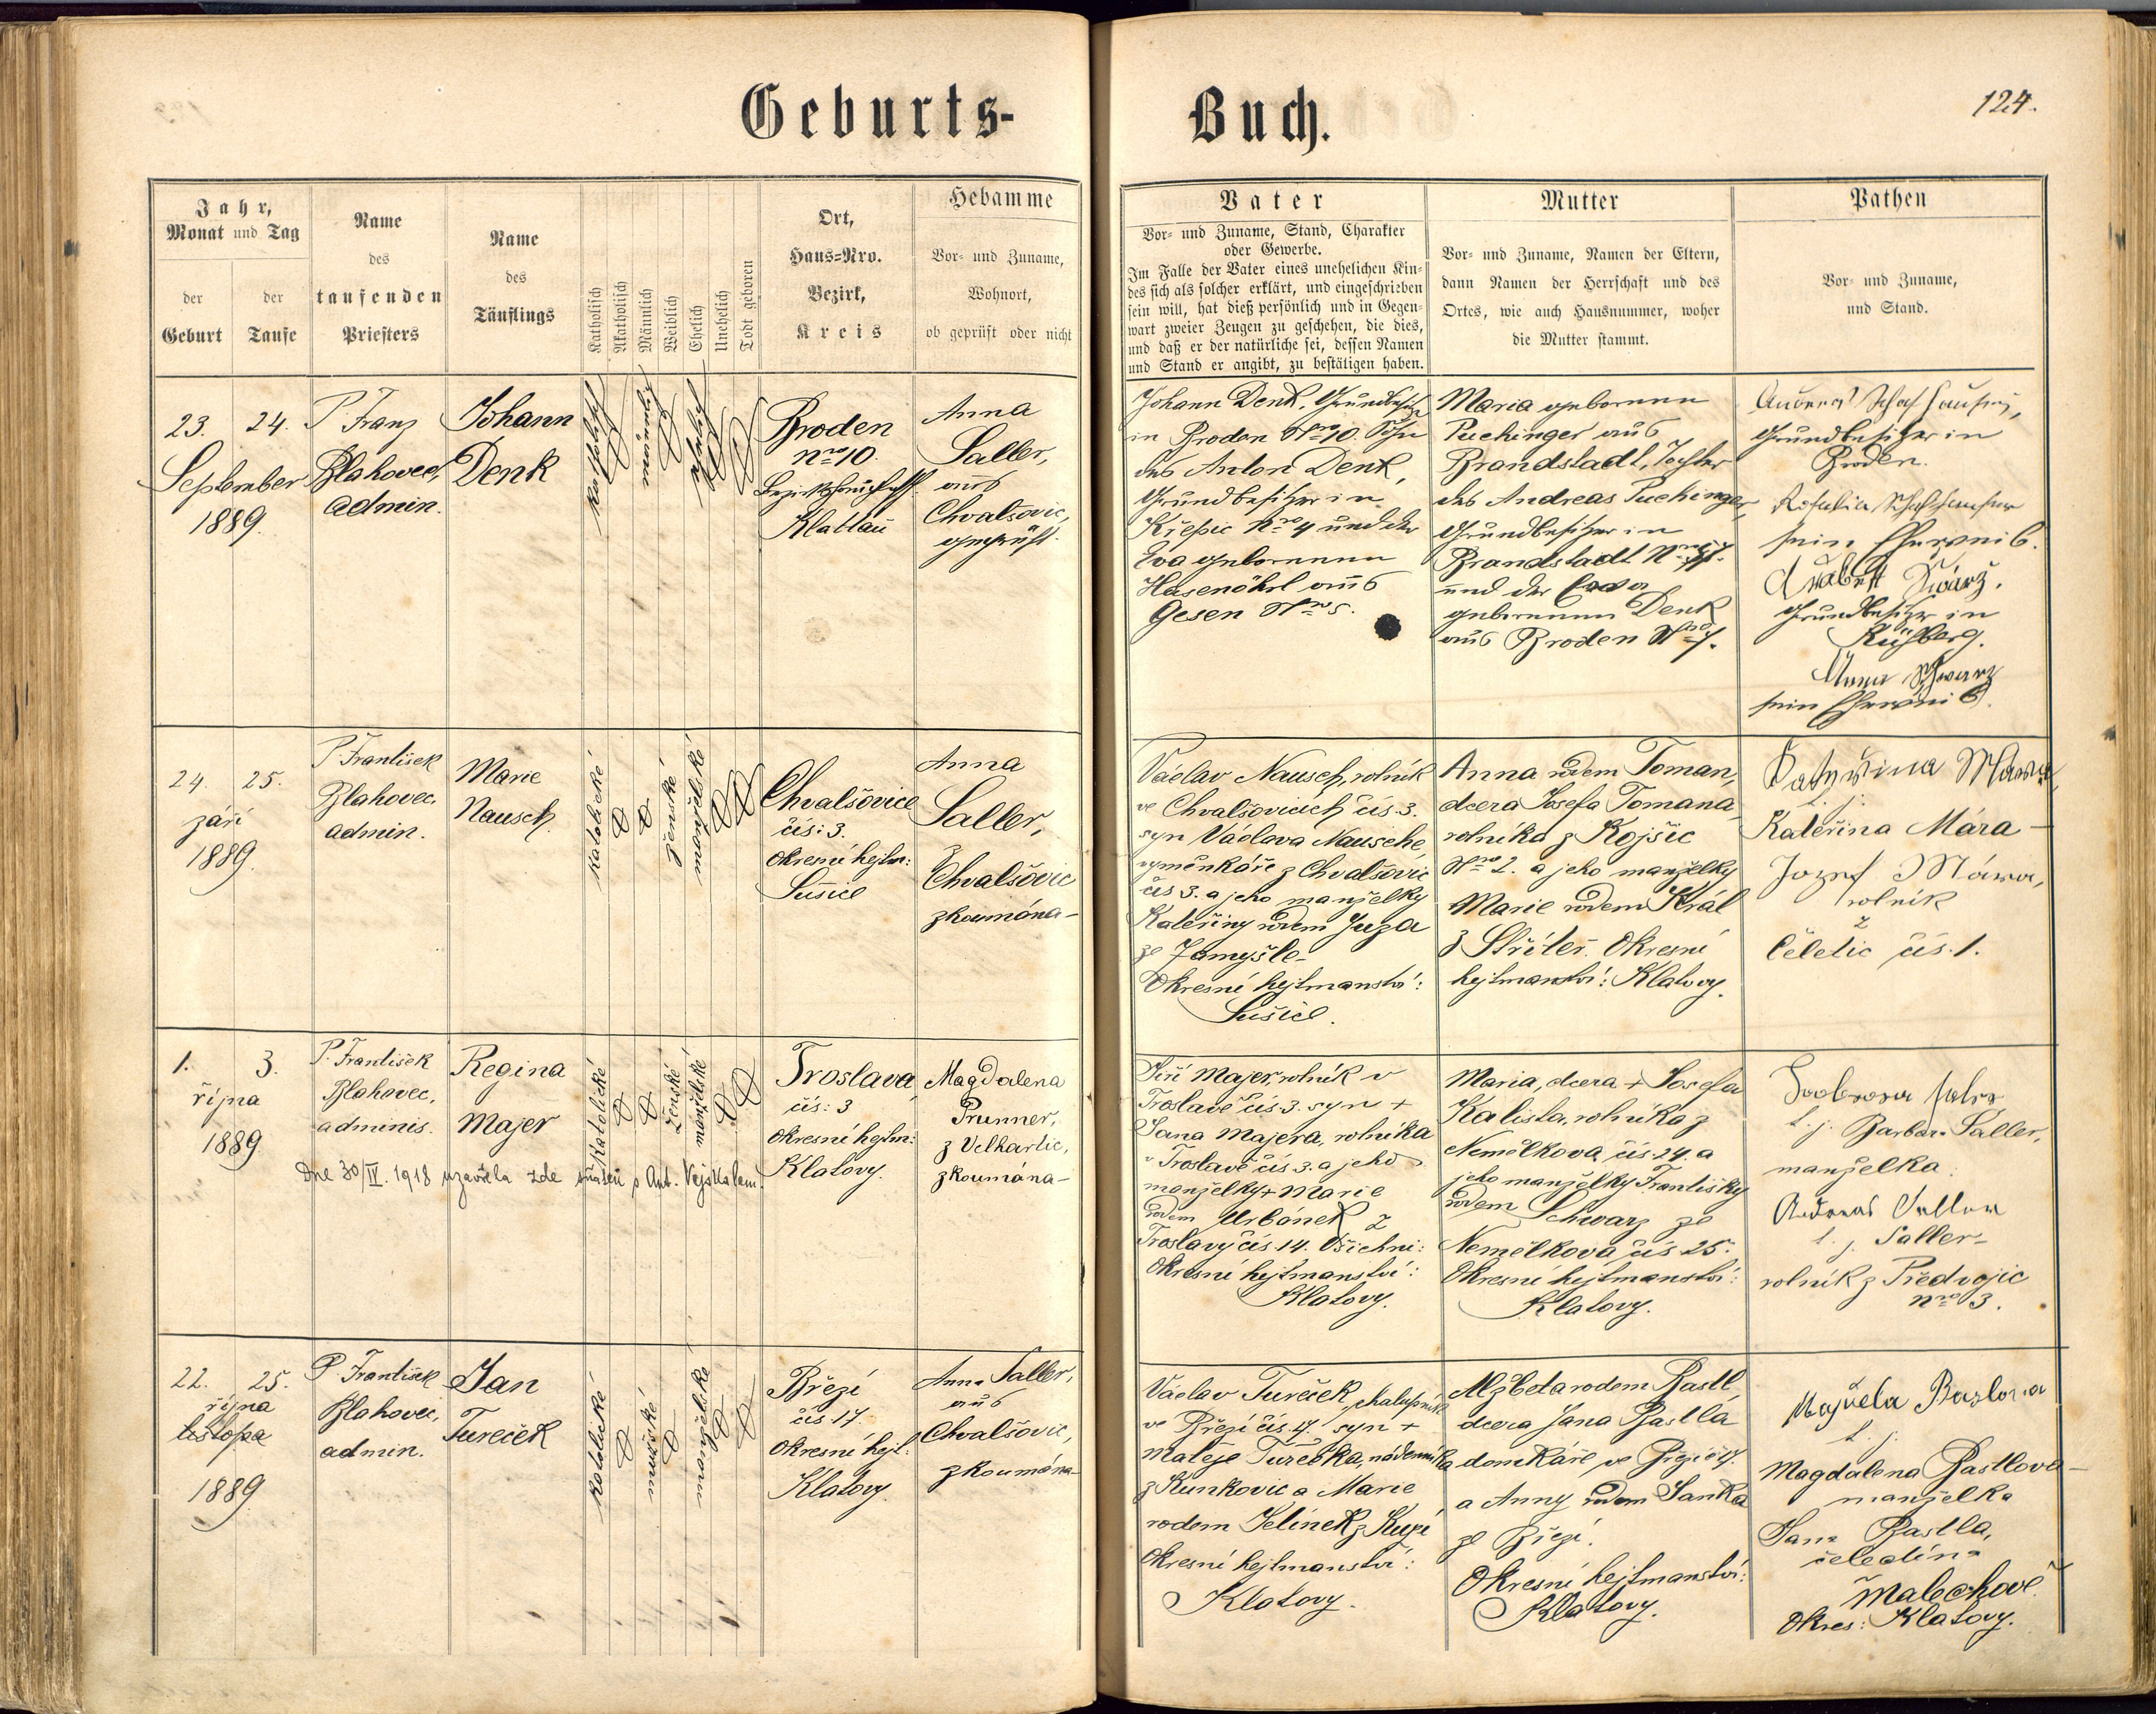 Geburts-
Buch.
124.
Jahr,
Monat und Tag
der
Geburt
der
Taufe
Name
des
taufenden
Priesters
Name
des
Täuflings
Katholisch
Akatholisch
Männlich
Weiblich
Ehelich
Unehelich
Todt geboren
Ort,
Haus-Nro.
Bezirk,
Kreis
Hebamme
Vor- und Zuname,
Wohnort,
ob geprüft oder nicht
Vater
Vor- und Zuname, Stand, Charakter
oder Gewerbe.
Im Falle der Vater eines unehelichen Kin-
des sich als solcher erklärt, und eingeschrieben
sein will, hat dieß persönlich und in Gegen-
wart zweier Zeugen zu geschehen, die dies,
und daß er der natürliche sei, dessen Namen
und Stand er angibt, zu bestätigen haben.
Mutter
Vor- und Zuname, Namen der Eltern,
dann Namen der Herrschaft und des
Ortes, wie auch Hausnummer, woher
die Mutter stammt.
Pathen
Vor- und Zuname,
und Stand.
23. 24.
September
1889.
P. Franz
Blahovec,
admin.
Johann
Denk
katholisch
männlich
ehelich
Broden
nro 10.
Bezirkshauptm.
Klattau
Anna
Saller,
aus
Chvalšovic,
geprüft.
Johann Denk, Grundbesitzer
in Broden Nro 10. Sohn
des Anton Denk,
Grundbesitzer in
Křepic Nro 4 und der
Eva geborenen
Hasenöhrl aus
Gesen Nro 5.
Maria geborenen
Puchinger aus
Brandstadt, Tochter
des Andreas Puchinger,
Grundbesitzer in
Brandstadt Nro
und der Eva
geborenen Denk
aus Broden Nro 7.
Andreas Schafhauser,
Grundbesitzer in
Broden.
Rosalia Schafhauser
sein Eheweib.
Grundbesitzer in
Kühberg.
Anna Schwarz
sein Eheweib.
24. 25.
září
1889.
P. František
Blahovec,
admin.
Marie
Nausch.
katolické
ženské
manželské
Chvalšovice
čís: 3.
Okresní hejtm:
Sušice
Anna
Saller,
z
Chvalšovic
zkoumána-
Václav Nausch, rolník
ve Chvalšovicích čís. 3.
syn Václava Nausche,
výměnkáře z Chvalšovic
čís 3. a jeho manželky
Kateřiny rodem Juza
ze Zamyšle-
Okresní hejtmanství:
Sušice.
Anna rodem Toman,
dcera Josefa Tomana
rolníka z Kojšic
Nro 2. a jeho manželky
Marie rodem Král
z Střiteř. Okresní
hejtmanství: Klatovy.
Katyřina Mara
t. j.
Kateřina Mára-
Jozef Mára,
rolník
z
Čeletic čís. 1.
1. 3.
října
1889.
P. František
Blahovec,
adminis.
Regina
Majer
katolické
ženské
manželské
Dne 30/IV. 1918 uzavřela zde sňatek s Ant. Vejskalem.
Troslava
čís: 3
Okresní hejtm:
Klatovy.
Magdalena
Prunner,
z Velhartic,
zkoumána-
Jiří Majer, rolník v
Troslavě čís 3. syn +
Jana Majera, rolníka
v Troslavě čís 3. a jeho
manželky + Marie
rodem Urbánek z
Troslavy čís 14. Všichni:
Okresní hejtmanství:
Klatovy.
Maria, dcera + Josefa
Kalista, rolníka z
Nemělkova čís. 24. a
jeho manželky Františky
rodem Schwarz ze
Nemělkova čís 25.
Okresní hejtmanství:
Klatovy.
t. j. Barbara Saller,
manželka
Andreas Saller
t. j. Saller-
rolník z Předvojic
Nro 3.
22. 25.
října
listopa
1889.
P. František
Blahovec,
admin.
Jan
Tureček
katolické
mužské
manželské
Březí
čís 17.
Okresní hejt:
Klatovy.
Anna Saller,
aus
Chvalšovic,
zkoumána-
Václav Tureček, chalupník
ve Březí čís. 17. syn +
Matěje Turečka, nádenníka
z Kunkovic a Marie
rodem Jelínek z Kupí
Okresní hejtmanství:
Klatovy.
Alžbeta rodem Bastl,
dcera Jana Bastla
domkáře ve Březí č 17.
a Anny rodem Janka
ze Březí.
Okresní hejtmanství:
Klatovy.
t. j.
Magdalena Bastlová-
manželka
Jana Bastla,
čeledína
Malechově.
Okres: Klatovy.